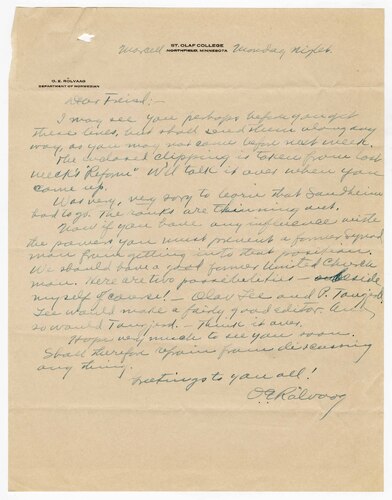 ST. OLAF COLLEGE
NORTHFIELD, MINNESOTA
Marcell Monday Night.
O. E. ROLVAAG
DEPARTMENT OF NORWEGIAN
Dear Friend:-
I may see you perhaps before you get
these lines, but shall send them along any
way, as you may not come before next week.
The enclosed clipping is taken from last
week's "Reform" We'll talk it over when you
come up.
Was very, very sorry to learn that Sandheim
had to go. The ranks are thinning out.
Now if you have any influence with
the powers you must prevent a former Synod
man from getting into that position.
We should have a good former United Church
man. Here are two possibilities — beside
myself of course! — Olav Lee and P.
Lee would make a fairly good editor. And
so would — Think it over.
Hope very much to see you soon.
Shall therefore refrain from discussing
any thing.
Greetings to you all!
O E Rölvaag